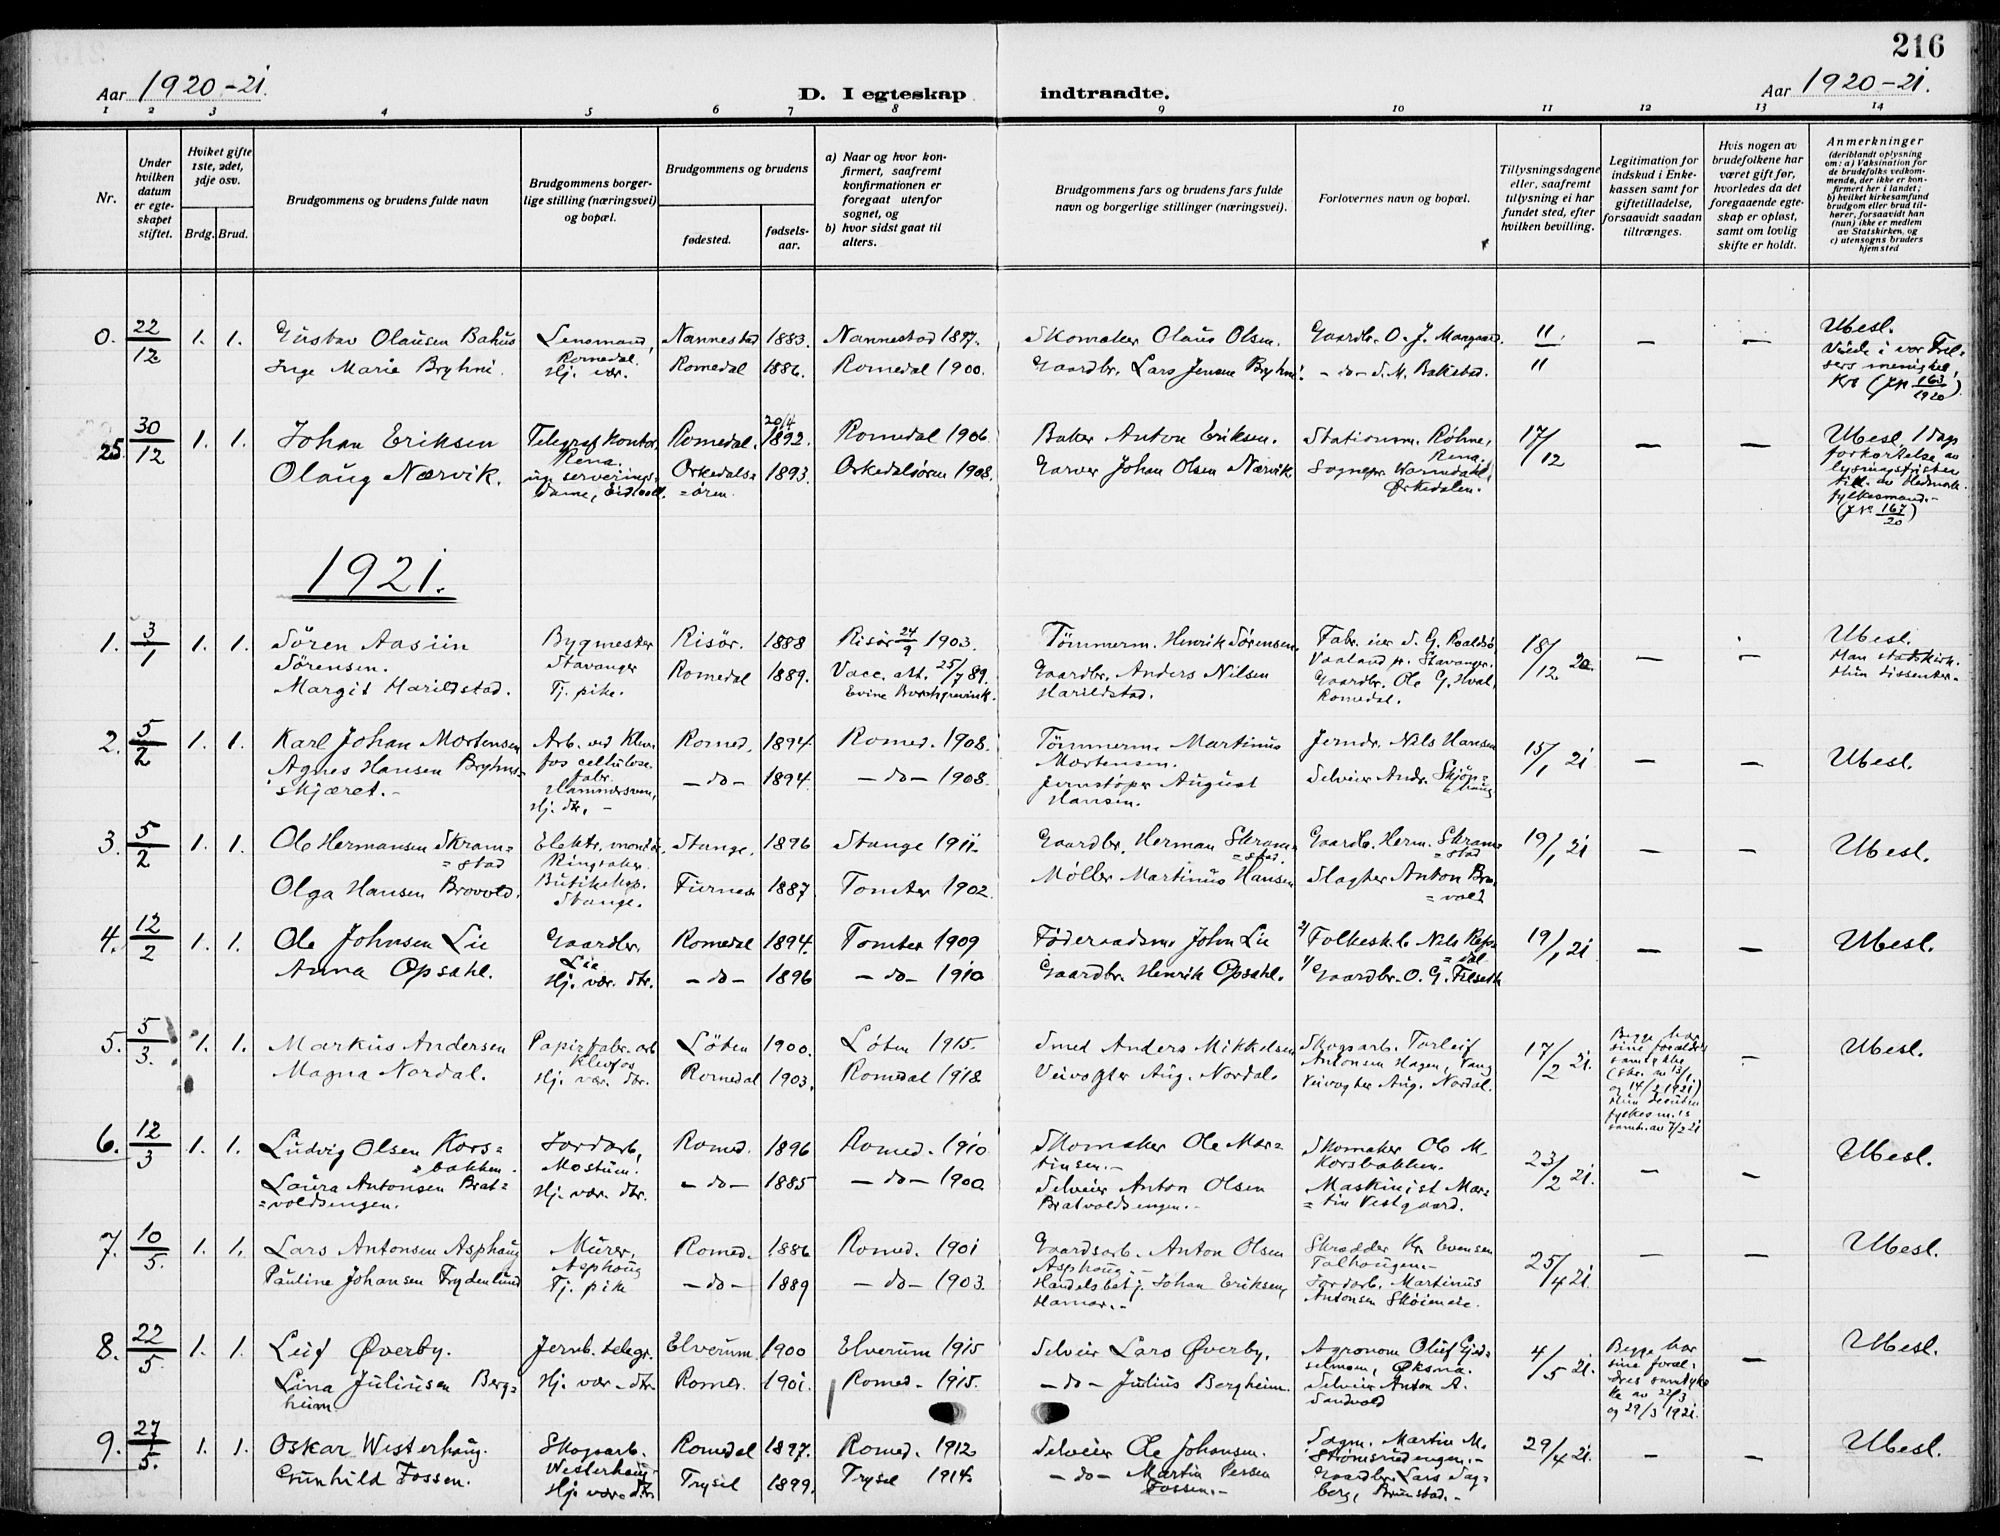 216
Aar 1920-21.
D. I egteskap indtraadte.
Aar 1920-21.
1 2 3 4 5 6 7 8 9 10 11 12 13 14
Nr.
Under hvilken datum er egte-skapet stiftet.
Hviket gifte 1ste, 2det, 3dje osv.
Brdg. Brud.
Brudgommens og brudens fulde navn
Brudgommens borger-lige stilling (næringsvei) og bopæl.
Brudgommens og brudens
fødested.
fødsels-aar.
a) Naar og hvor kon-firmert, saafremt konfirmationen er foregaat utenfor sognet, og
b) hvor sidst gaat til alters.
Brudgommens fars og brudens fars fulde navn og borgerlige stillinger (næringsvei).
Forlovernes navn og bopæl.
Tillysningsdagene eller, saafremt tillysning ei har fundet sted, efter hvilken bevilling.
Legitimation for indskud i Enke-kassen samt for giftetilladelse, forsaavidt saadan tiltrænges.
Hvis nogen av brudefolkene har været gift før, hvorledes da det foregaaende egte-skap er opløst, samt om lovlig skifte er holdt.
Anmerkninger
(deriblandt oplysning om: a) Vaksination for de brudefolks vedkom-mende, der ikke er kon-firmert her i landet;
b) hvilket kirkesamfund brudgom eller brud til-hører, forsaavidt han (hun) ikke er medlem av Statskirken, og
c) utensogns bruders hjemsted
0. 22/12 1. 1. Gustav Olausen Bahus Lensmand, Romedal. Nannestad 1883. Nannestad 1897. Skomaker Olaus Olsen. Gaardbr. O. J. Mangaard. 11/11 — — Ubesl.
Inge Marie Bryhni. Hj. vær. Romedal 1886. Romedal 1900. Gaardbr. Lars Jensen Bryhni. -do- S. M. Bakstad. Viede i vor Frel-
sers menighet,
Kra (JN 163/1920).
25. 30/12 1. 1. Johan Eriksen Telegrafkontor. Rena. Romedal. 20/4 1892. Romedal 1906. Baker Anton Eriksen. Stationsm. Røhne, Rena. 17/12 — — Ubesl. 1 dags
Olaug Nærvik. serverings-
dame, Eidsvoll. Orkedals-
=ören. 1893. Orkedalsören 1908. Garver Johan Olsen Nærvik Sognepr.
Orkedalen. forkortelse av
lysningsfristen
till. av Hedmark
fylkesmand.-
(JN. 167/20)
1921.
1. 3/1 1. 1. Sören Aasiin Bygmester Risör. 1888 Risör 24/9 1903. Tömmerm. Henrik Sörensen. Fabr. eier S. G. 18/12 20. — — Ubesl.
Sörensen. Stavanger Vaaland pr. Stavanger. Han statskirk.
Margit Harildstad. Tj. pike. Romedal 1889. Vacc. att. 25/7 89. Gaardbr. Anders Nilsen
Harildstad. Gaardbr. Ole G. Hval,
Romedal. Hun dissenter.
2. 5/2 1. 1. Karl Johan Mortensen Arb. ved Klev-
fos cellulose-
fabr. Romed. 1894. Romed. 1908. Tömmerm. Martinus
Mortensen. Jerndr. Nils Hansen 15/1 21 — — Ubesl.
Agnes Hansen Bryhns-
skjæret.- Hammersven,
Hj. dtr. - -do- 1894. -do- 1908. Jernstöper August
Hansen. Selveier Andr. Skjöp-
=haug
3. 5/2 1. 1. Ole Hermansen Skram-
=stad Elektr. montör. Ringsaker. Stange. 1896 Stange 1911. Gaardbr. Herman Skram-
=stad. Gaardb. Herm. Skram-
=stad 19/1 21 — — Ubesl.
Olga Hansen Brovold. Butikeksp.
Stange. Furnes 1887. Tomter 1902. Møller Martinus Hansen Slagter Anton Bro-
=vold
4. 12/2 1. 1. Ole Johnsen Lie Gaardbr.
Lie Romedal 1894. Tomter 1909 Föderaadsm. John Lie 2/ Folkesk.l. Nils Rep-
=dal 19/1 21 — — Ubesl.
Anna Opsahl. Hj. vær. dtr. -do- 1896 -do- 1910 Gaardbr. Henrik Opsahl. 1/ Gaardbr. O. G. Filseth
5. 5/3. 1. 1. Markus Andersen Papirfabr. arb
Klevfos Löten 1900. Löten 1915. Smed Anders Mikkelsen Skogsarb. Torleif
Antonsen Hagen, Vang 17/2 21. Begge har
sine forældres
samtykke
(skr. av 13/1
og 14/2 1921)
Hun desuten
fylkesm.'s
samt. av 7/2 21 — Ubesl.
Magna Nordal. Hj. vær. dtr. Romedal 1903. Romedal 1918. Veivogter Aug. Nordal. Veivogter Aug. Nordal.
6. 12/3 1. 1. Ludvig Olsen Kors-
=bakken. Jordarb.
Mostuen. Romed. 1896 Romed. 1910 Skomaker Ole Mar-
tinsen.- Skomaker Ole M.
Korsbakken. 23/2 21. — — Ubesl.
Laura Antonsen Brat-
=voldsengen. Hj. vær. dtr. -do- 1885 -do- 1900. Selveier Anton Olsen
Bratvoldsengen.- Maskinist Mar-
=tin Vestgaard.
7. 10/5. 1. 1. Lars Antonsen Asphaug Murer,
Asphaug Romed. 1886 Romed. 1901 Gaardsarb. Anton Olsen
Asphaug.- Skrædder Kr. Evensen
Talhaugen.- 25/4 21. — — Ubesl.
Pauline Johansen Frydenlund Tj. pike -do- 1889 -do- 1903. Handelsbetj. Johan Eriksen,
Hamar.- Jordarb. Martinus
Antonsen Skøieneie.
8. 22/5 1. 1. Leif Øverby. Jernb. telegr. Elverum 1900 Elverum 1915 Selveier Lars Øverby. Agronom Oluf
Øksna. 4/5 21. Begge har
sine foræl-
dres samtyk-
ke av 22/3
og 29/3 1921. — Ubesl.
Lina Juliusen Berg-
heim. Hj. vær. dtr. Romed. 1901. Romed. 1915. -do- Julius Bergheim. Selveier Anton A.
Sandvold
9. 27/5. 1. 1. Oskar Westerhaug. Skogsarb.
Westerhaug Romedal 1897. Romed. 1912 Selveier Ole Johansen. Sagm. Martin M.
Strømsrudengen.- 29/4 21. — — Ubesl.
Gunhild Fossen. Hj. vær. dtr. Trysil 1899. Trysil 1914. -do- Martin Persen
Fossen.- Gaardbr. Lars Sag-
berg, Brunstad.-